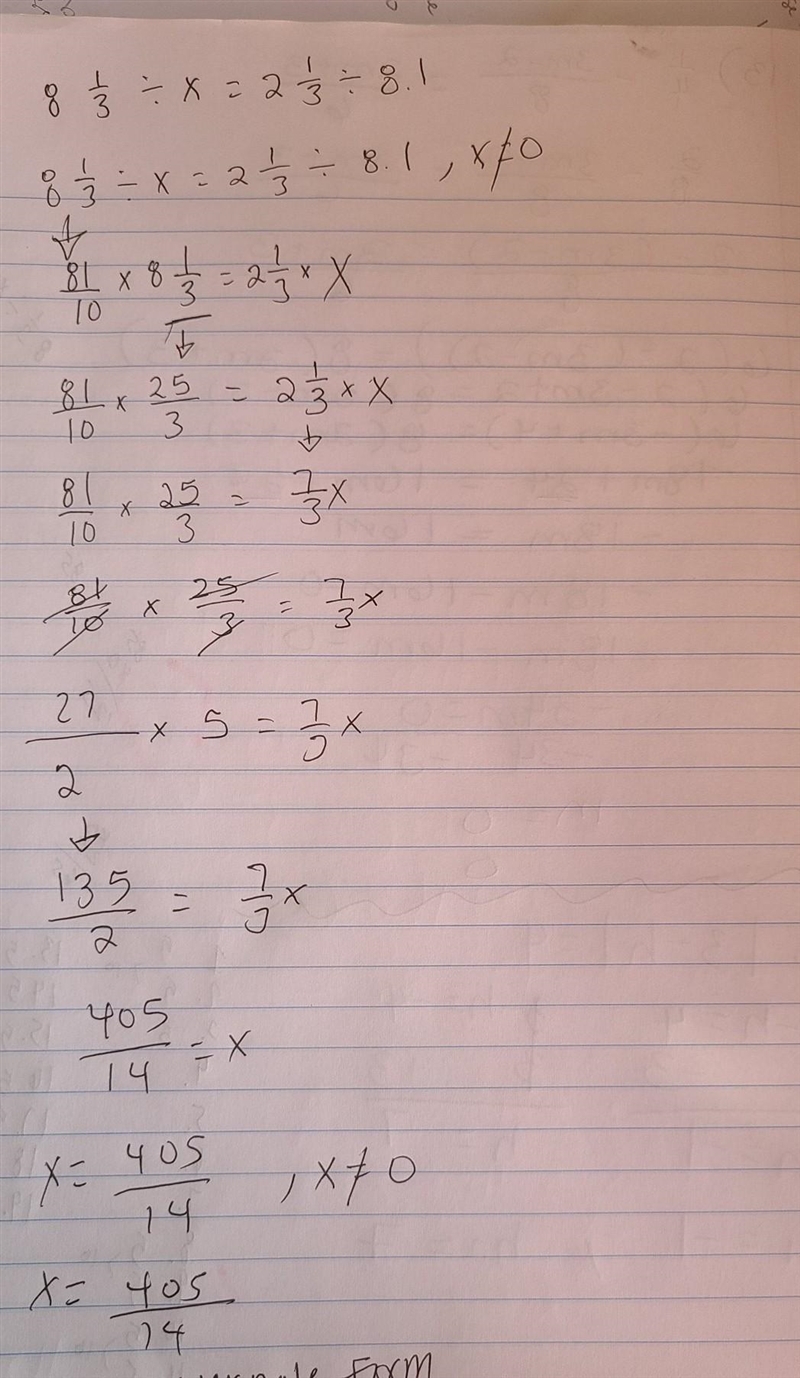 8 1/3 ÷ x = 2 1/3 ÷ 8.1
8 1/3 ÷ x = 2 1/3 ÷ 8.1 , x ≠ 0
81/10 × 8 1/3 = 2 1/3 × X
81/10 × 25/3 = 2 1/3 × X
81/10 × 25/3 = 7/3 x
81/10 × 25/3 = 7/3 x
27/2 × 5 = 7/3 x
135/2 = 7/3 x
405/14 = x
x = 405/14 , x ≠ 0
x = 405/14
Form